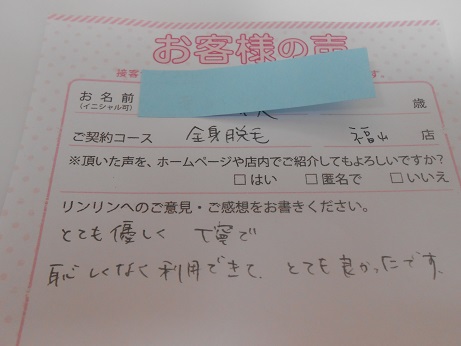 お客様の声
お名前 歳
(イニシャル可)
ご契約コース 全身脱毛 福山 店
※頂いた声を、ホームページや店内でご紹介してもよろしいですか?
□はい □匿名で □いいえ
リンリンへのご意見・ご感想をお書きください。
とても優しく 丁寧で
恥しくなく利用できて、とても良かったです。